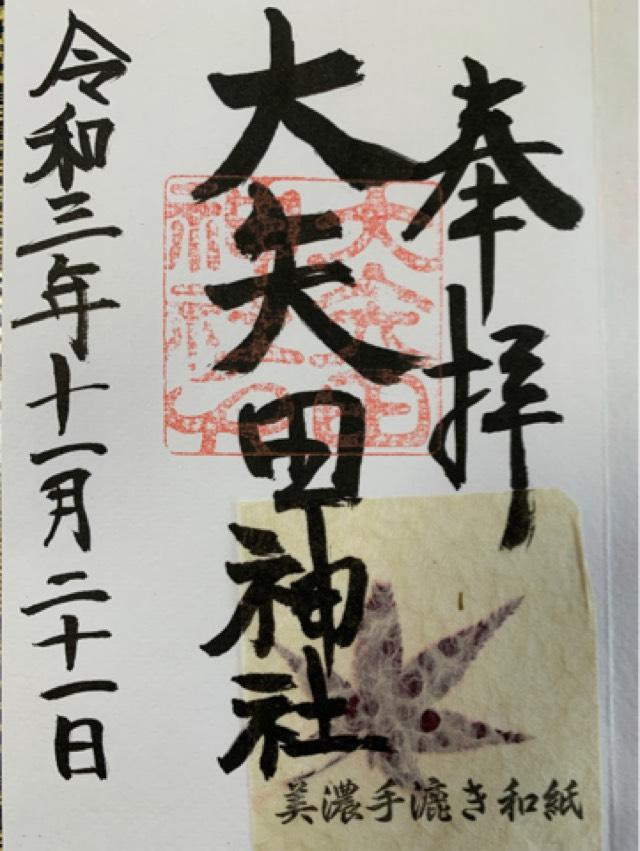 奉拝
大矢田神社
令和三年十一月二十一日
美濃手漉き和紙